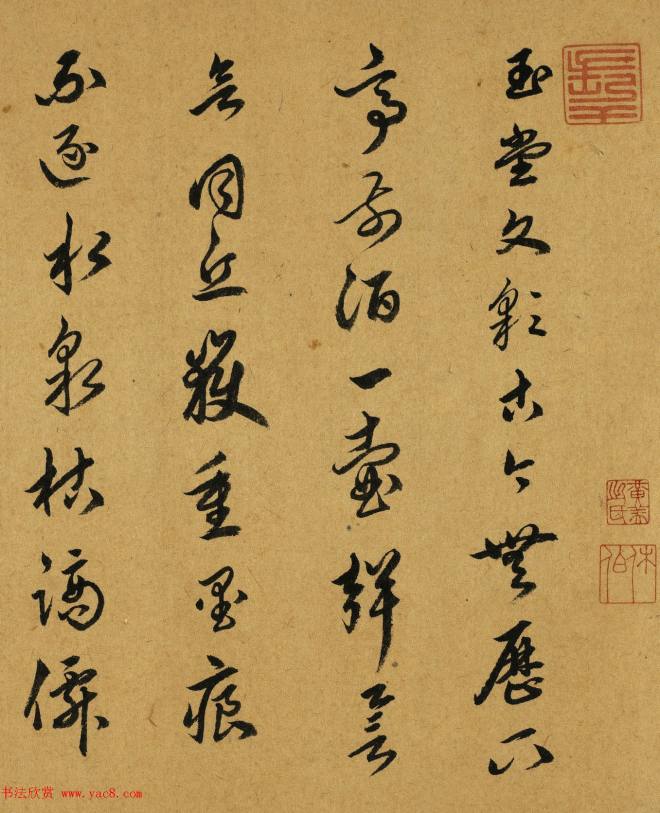 玉堂文彩古今無歷下
亭前酒一壺
同丘壑重墨痕
不逐松泉枯謫僊
书法欣赏 www.yac8.com